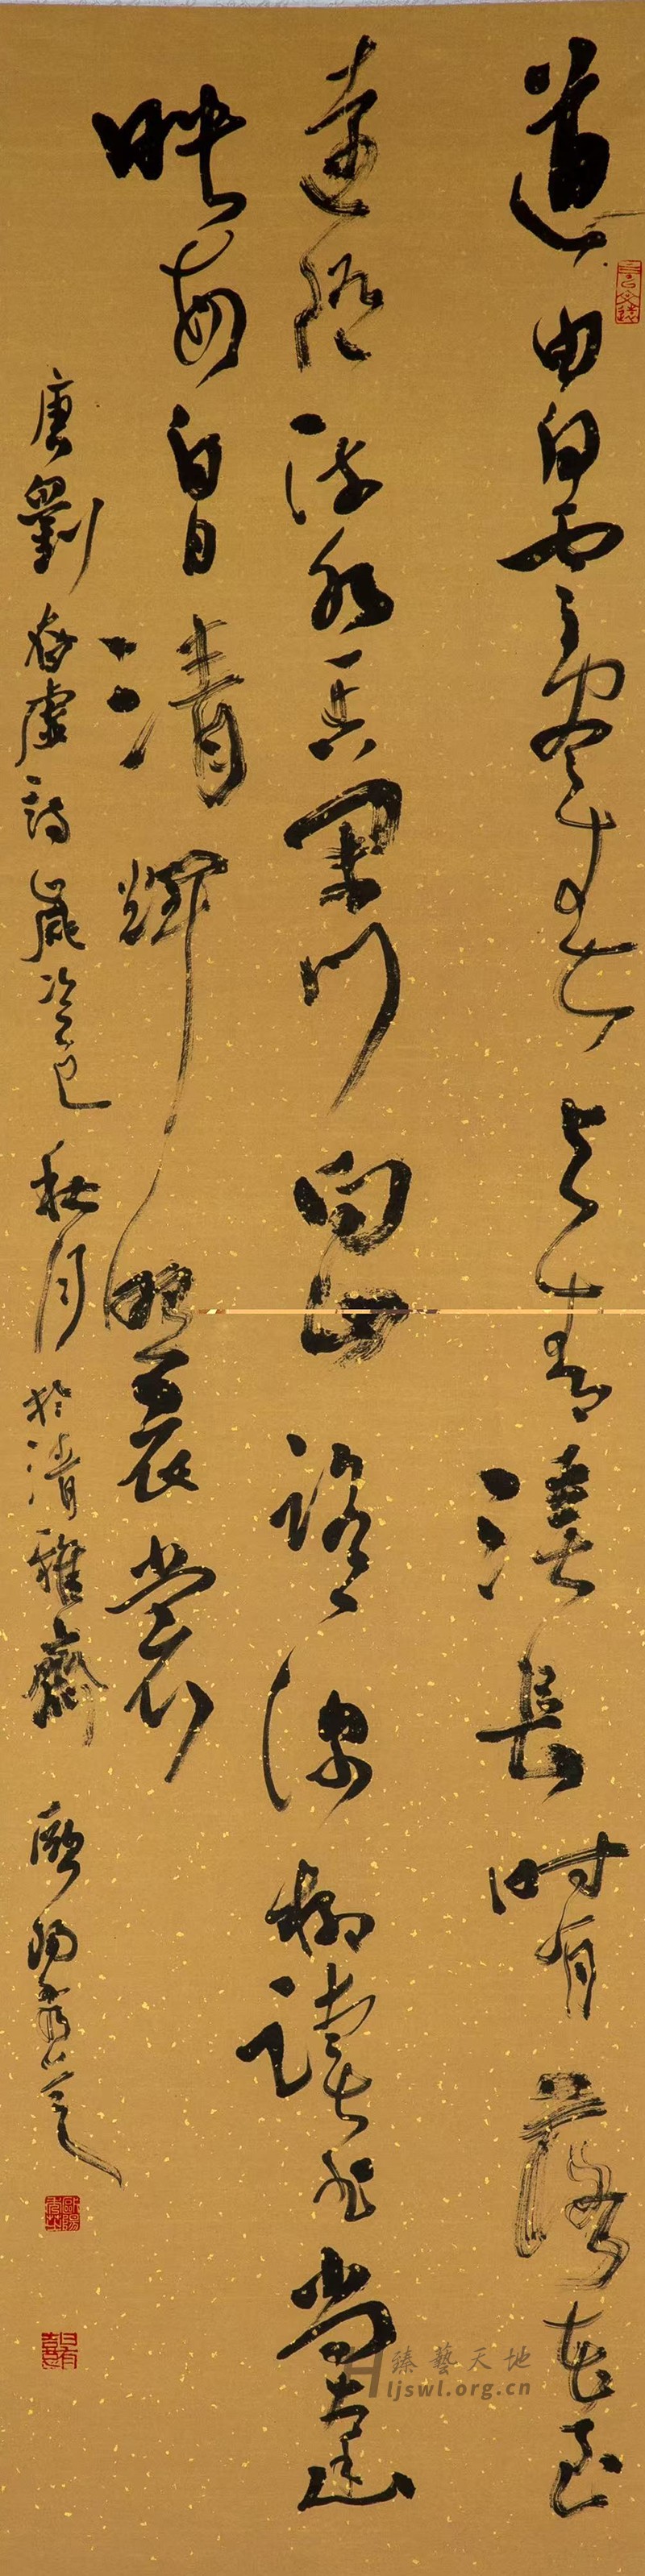 道由白雲盡春與青溪長時有落花至
遠隨流水香閑門向山路深柳讀書堂幽
映每白日清輝照衣裳
唐劉昚虛詩歲癸巳秋月於清雅齋歐陽
臻藝天地
ljswl.org.cn